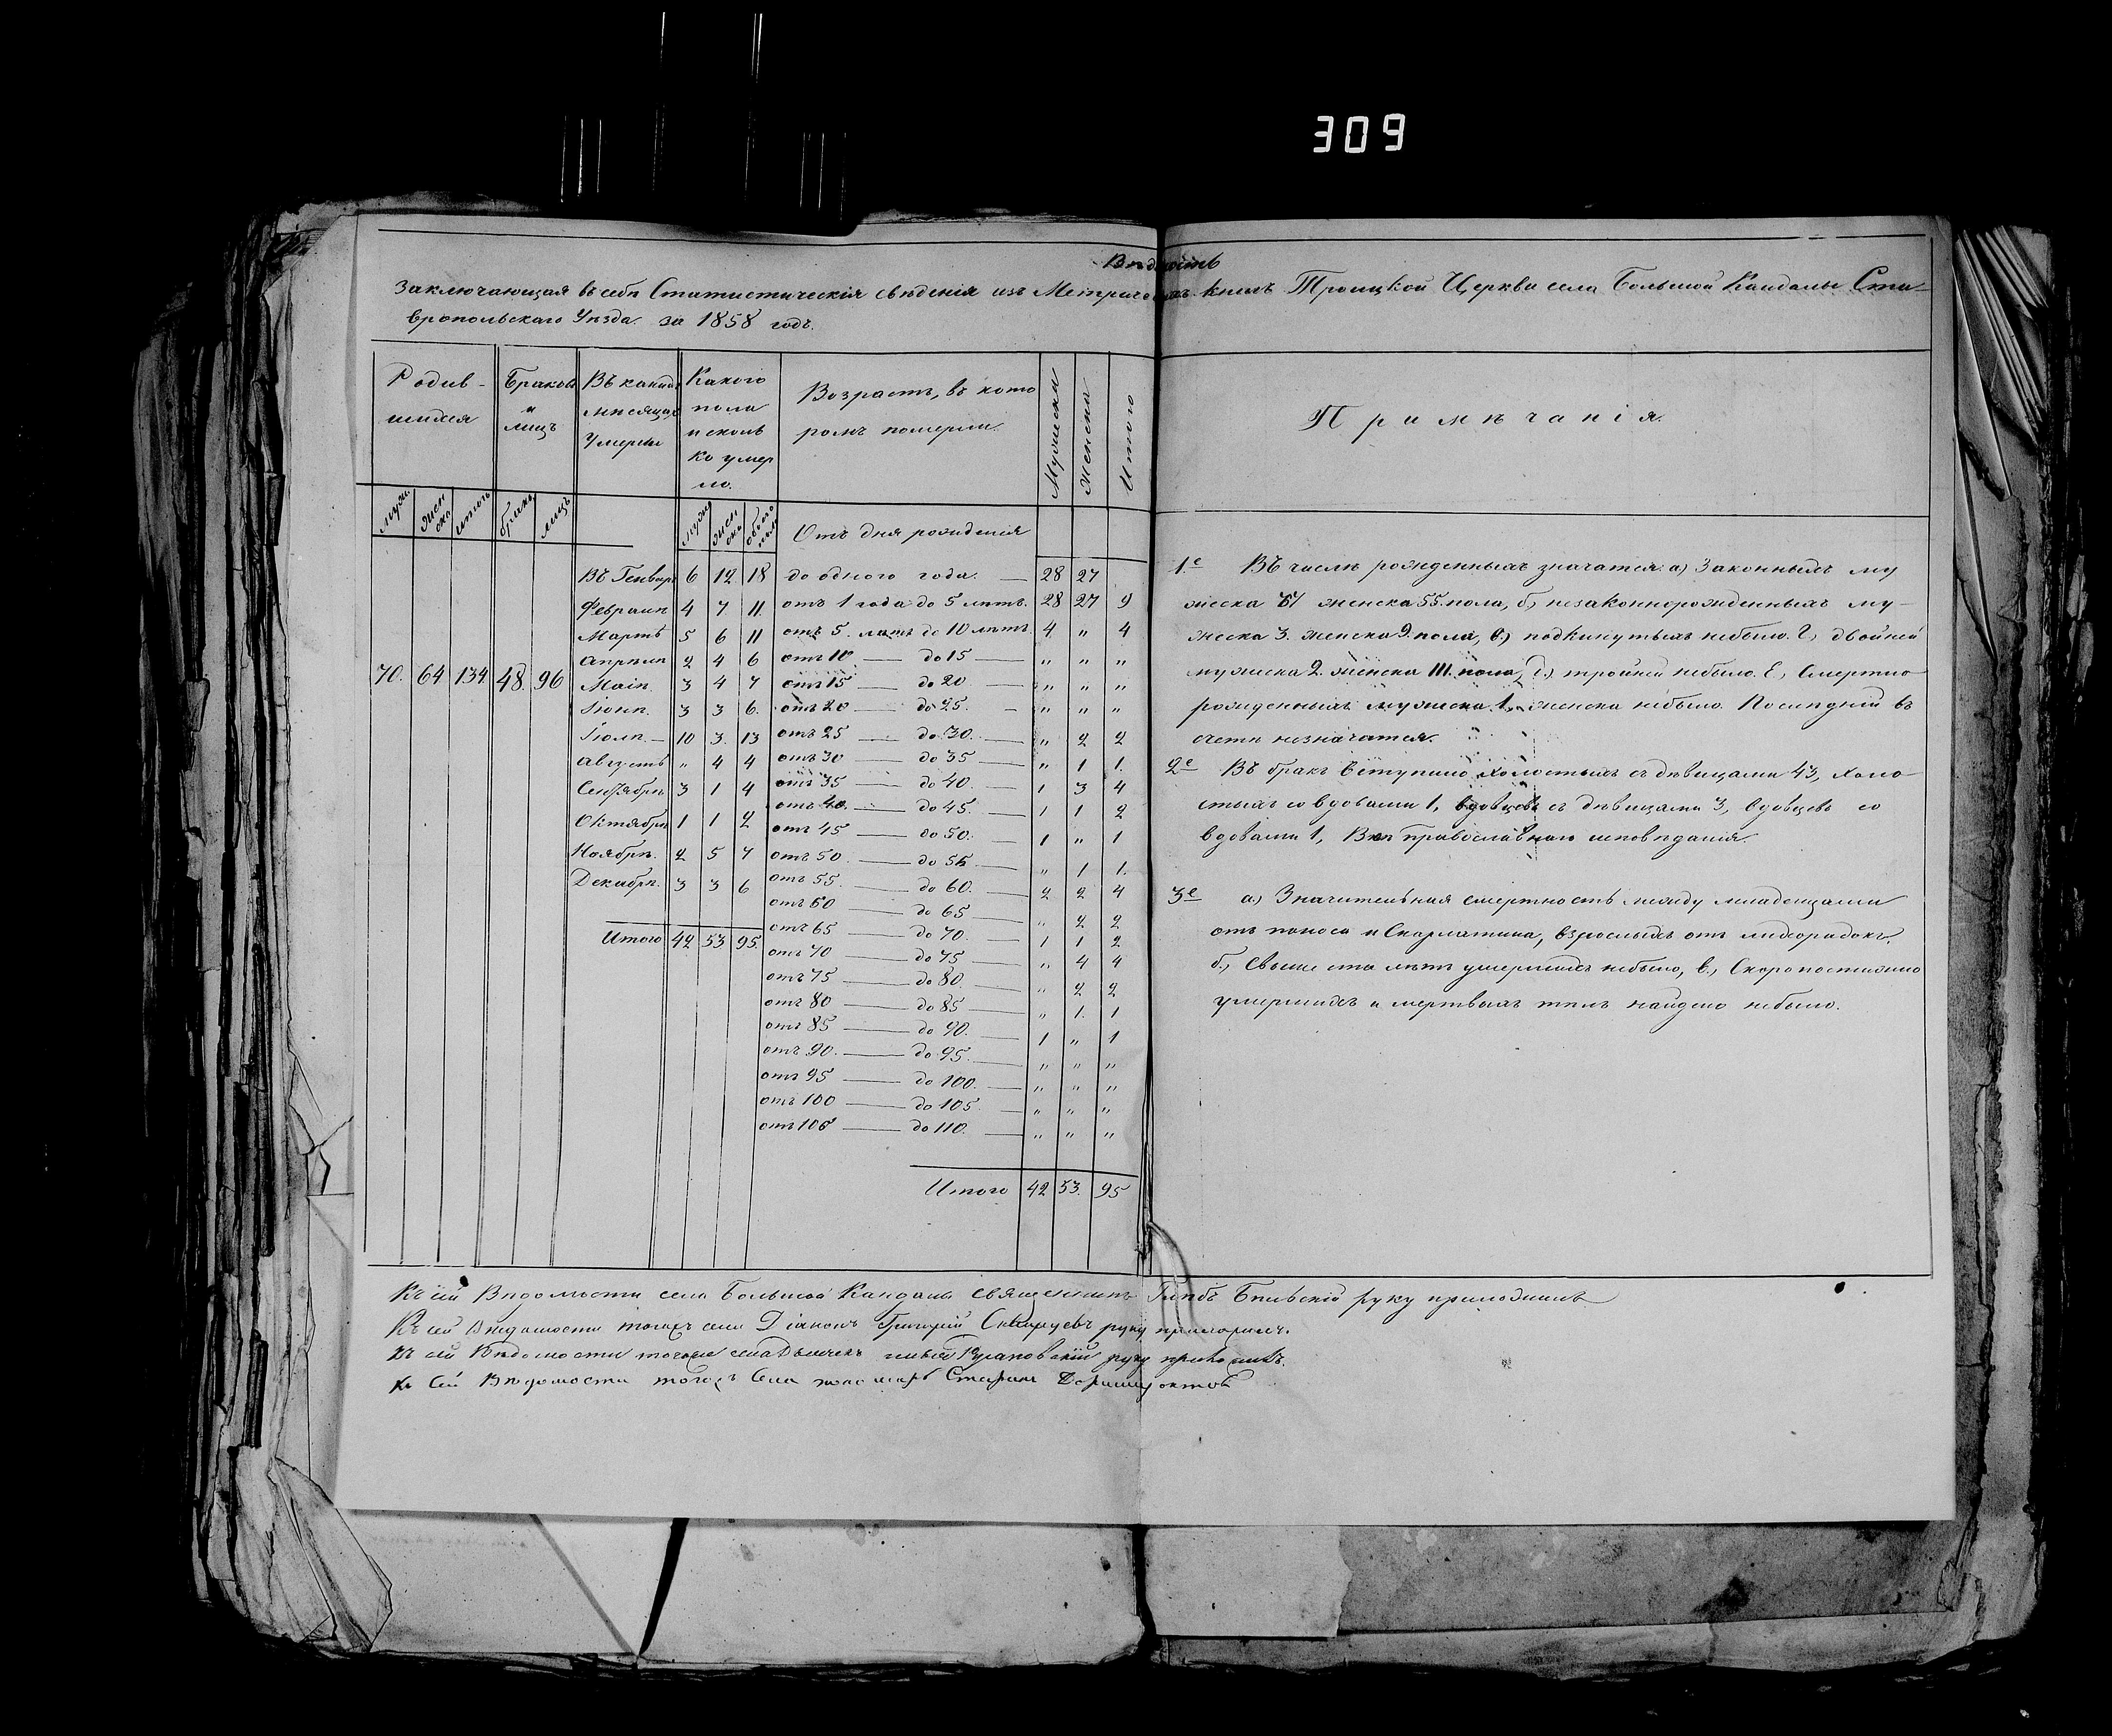 309
Вѣдомость
Заключающая въ себѣ Статистическія свѣденія изъ Метрическихъ книгъ Троицкой Церкви села Большой Кандалы Ста-
вропольскаго Уѣзда за 1858 годъ.
Родив- Браковъ Въ какихъ Какого Возрастъ, въ кото Мужеска Женска Итого Примѣчанія.
шихся и мѣсяцахъ пола ромъ померли.
лицъ Умерли и сколь
ко умер
ло.
муж. жен ска итого бракъ лицъ муж жен ска обоего пола Отъ дня рожденія
Въ Генварѣ 6 12 18 до одного года. — 28 27
Февралѣ 4 7 11 отъ 1 года до 5 лѣтъ. 28 27 9
Мартѣ 5 6 11 отъ 5. лѣтъ до 10 лѣтъ 4 " 4
Апрѣлѣ 2 4 6 отъ 10 — до 15 — " " "
70. 64 134 48. 96 Маіѣ 3 4 7 отъ 15 — до 20 — " " "
Іюнѣ. 3 3 6. отъ 20 — до 25. — " " "
Іюлѣ. — 10 3. 13 отъ 25 — до 30. — " 2 2
Августѣ " 4 4 отъ 30 — до 35 — " 1 1.
Сентябрѣ 3 1 4 отъ 35 — до 40. — 1 3 4
отъ 40. — до 45. — 1 1 2
Октябрѣ 1 1 2 отъ 45 — до 50. — 1 " 1
Ноябрѣ. 2 5 7 отъ 50. — до 55 — " 1 1.
Декабрѣ. 3 3 6 отъ 55. — до 60. — 2 2 4
отъ 60 — до 65 — " 2 2
Итого 42 53 95. отъ 65 — до 70. — 1 1 2
отъ 70 — до 75 — " 4 4
отъ 75 — до 80. — " 2 2
отъ 80 — до 85 — " 1. 1
отъ 85 — до 90. — 1 " 1
отъ 90. — до 95. — " " "
отъ 95 — до 100. — " " "
отъ 100 — до 105. — " " "
отъ 105 — до 110. — " " "
Итого 42 53. 95
1е Въ числѣ рожденныхъ значатся: а) Законныхъ му
жеска женска 55. пола, б, незаконнорожденныхъ му-
жеска 3. женска 9. пола, в.) подкинутыхъ небыло. г, двойней
мужеска 2. женска III. пола, д.) тройней небыло. Е, Смертно
рожденныхъ мужеска. 1. женска небыло. Послѣдній въ
счетъ незначатся.
2е Въ бракъ вступило холостыхъ съ дѣвицами 43, холо
стыхъ со вдовами 1, вдовцевъ съ дѣвицами 3, вдовцевъ со
вдовами 1, Всѣ православнаго исповѣданія.
3е а) Значительная смертность между младенцами
отъ поноса и Скарлатина, взрослыхъ отъ лихорадокъ,
б., Свыше ста лѣтъ умершихъ небыло, в., Скоропостижно
умершихъ и мертвыхъ тѣлъ найдено небыло.
Къ сей Вѣдомости села Большой Кандалы священникъ Глѣбъ руку приложилъ
Къ сей Вѣдомости тогожъ села Діаконъ Григорій руку приложилъ.
Къ сей Вѣдомости тогоже села Дьячекъ руку приложилъ.
Къ Сей Вѣдомости тогожъ Села пономарь Стефанъ